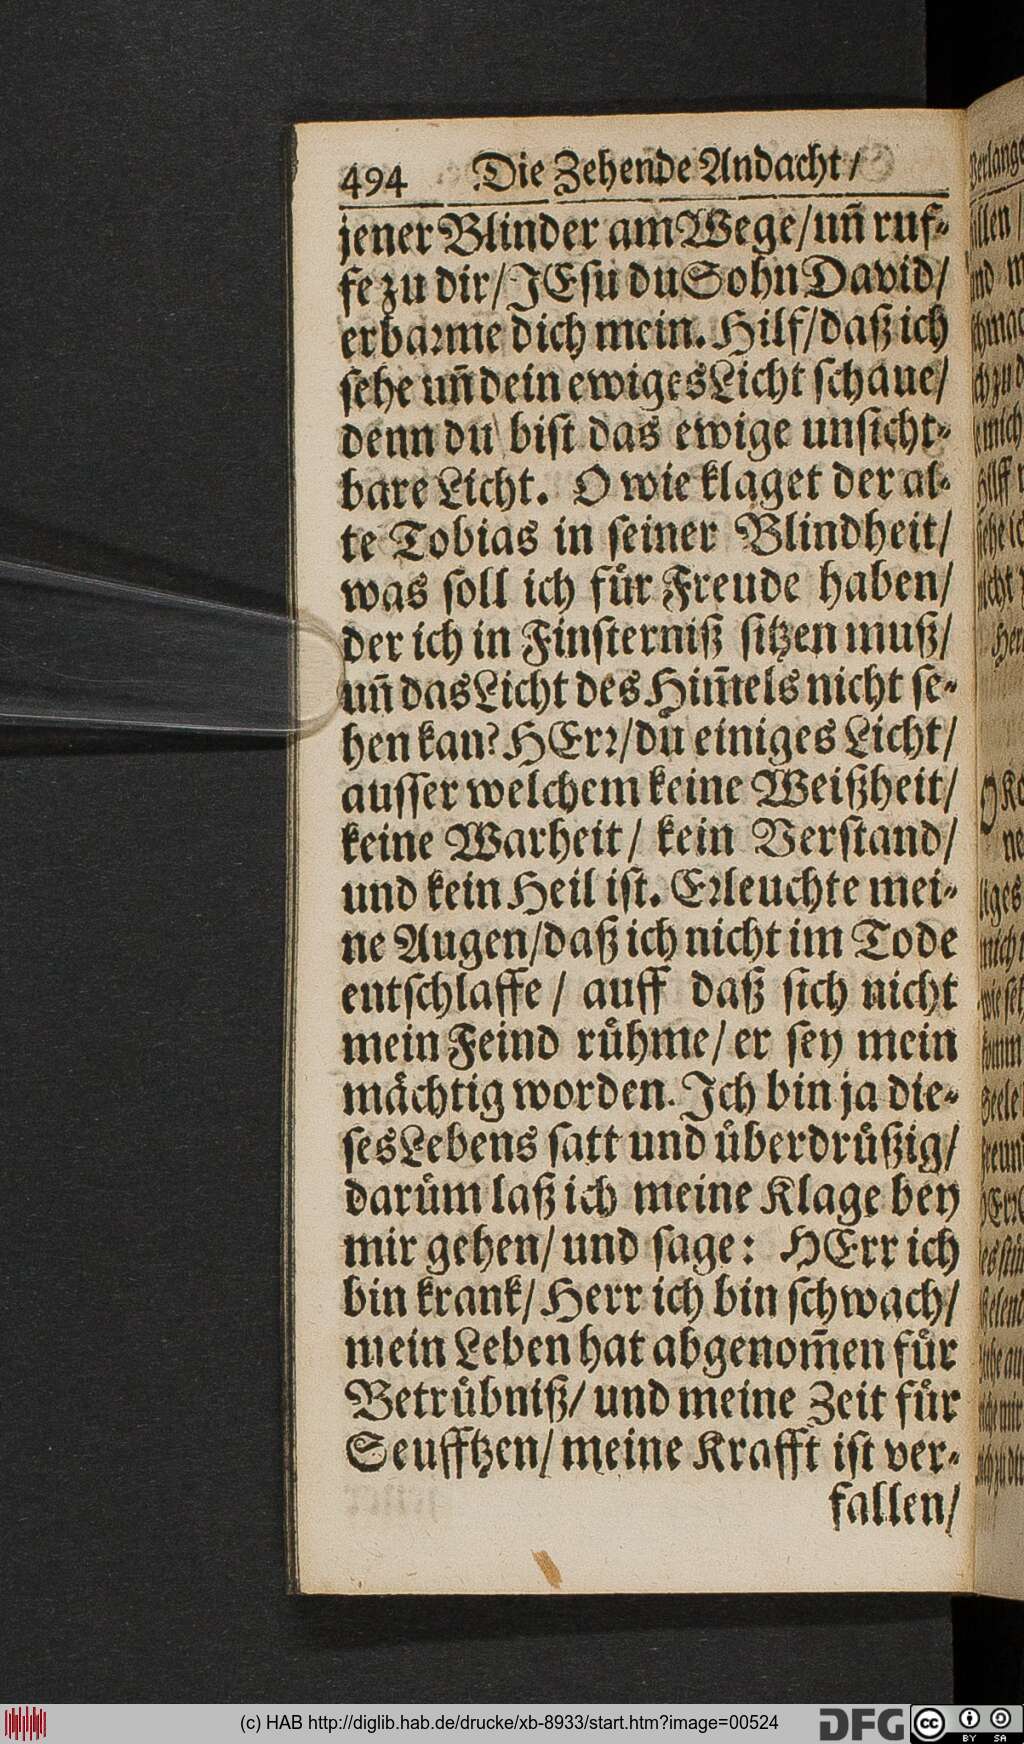 494 Die Zehende Andacht /
jener Blinder am Wege / uñ ruf-
fe zu dir / JEsu du Sohn David /
erbarme dich mein. Hilf / daß ich
sehe uñ dein ewiges Licht schaue /
denn du bist das ewige unsicht-
bare Licht. O wie klaget der al-
te Tobias in seiner Blindheit /
was soll ich fuͤr Freude haben /
der ich in Finsterniß sitzen muß /
uñ das Licht des Him̃els nicht se-
hen kan? HErr / du einiges Licht /
ausser welchem keine Weißheit /
keine Warheit / kein Verstand /
und kein Heil ist. Erleuchte mei-
ne Augen / daß ich nicht im Tode
entschlaffe / auff daß sich nicht
mein Feind ruͤhme / er sey mein
maͤchtig worden. Ich bin ja die-
ses Lebens satt und uͤberdruͤßig /
daruͤm laß ich meine Klage bey
mir gehen / und sage: HErr ich
bin krank / Herr ich bin schwach /
mein Leben hat abgenom̃en fuͤr
Betruͤbniß / und meine Zeit fuͤr
Seufftzen / meine Krafft ist ver-
fallen /
(c) HAB http://diglib.hab.de/drucke/xb-8933/start.htm?image=00524
DFG cc BY SA